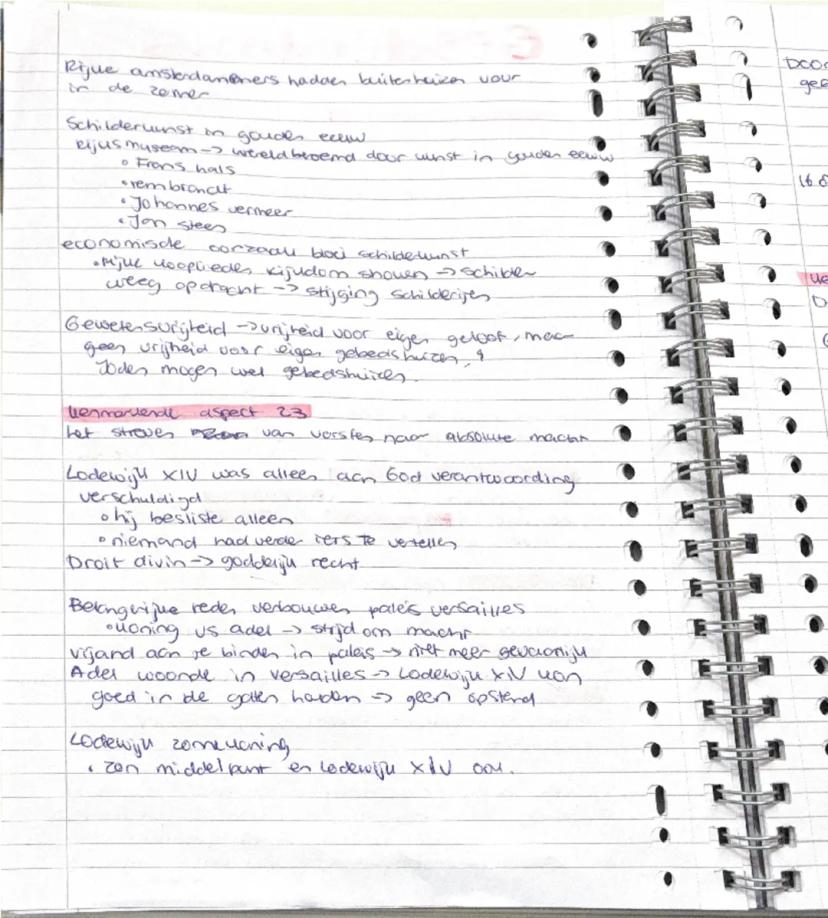 Rijke amsterdammers hadden buitenhuizen voor
in de zomer
Schilderkunst in gouden eeuw
Rijksmuseum → wereldberoemd door kunst in gouden eeuw
• Frans hals
• rembrandt
• Johannes vermeer
• Jan steen
economische oorzaak bloei schilderkunst
• Rijke kooplieden rijkdom showen → schilder
kreeg opdracht → stijging schilderijen
Gewetensvrijheid → vrijheid voor eigen geloof, maar
geen vrijheid voor eigen gebedshuizen,
Joden mogen wel gebedshuizen.
kenmerkende aspect 23
het streven van vorsten naar absolute macht
Lodewijk XIV was alleen aan God verantwoording
verschuldigd
• hij besliste alleen
• niemand had verder iets te vertellen
Droit divin → goddelijk recht
Belangrijke reden verbouwen paleis versailles
• koning vs adel → strijd om macht
vijand aan je binden in paleis → niet meer gevaarlijk
Adel woonde in versailles → Lodewijk XIV kon
goed in de gaten houden → geen opstand
Lodewijk zonnekoning
• zon middelpunt en Lodewijk XIV ook.
Door
gee
16.0
ke
D